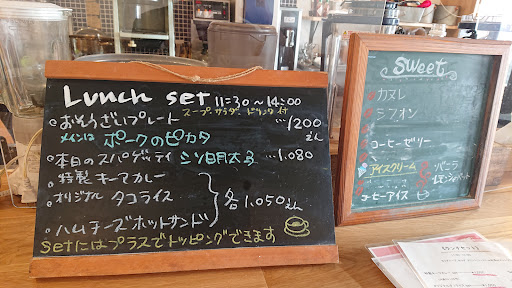 Lunch set 11:30～14:00
スープ、サラダ、ドリンク付
・おそうざいプレート …1200えん
メインは ポークのピカタ
・本日のスパゲッティ シソ明太子 …1.080
・特製キーマカレー
・オリジナル タコライス
・ハムチーズホットサンド
各1.050えん
setにはプラスでトッピングできます
Sweet
カヌレ
シフォン
コーヒーゼリー
アイスクリーム
バニラ
コーヒーアイス